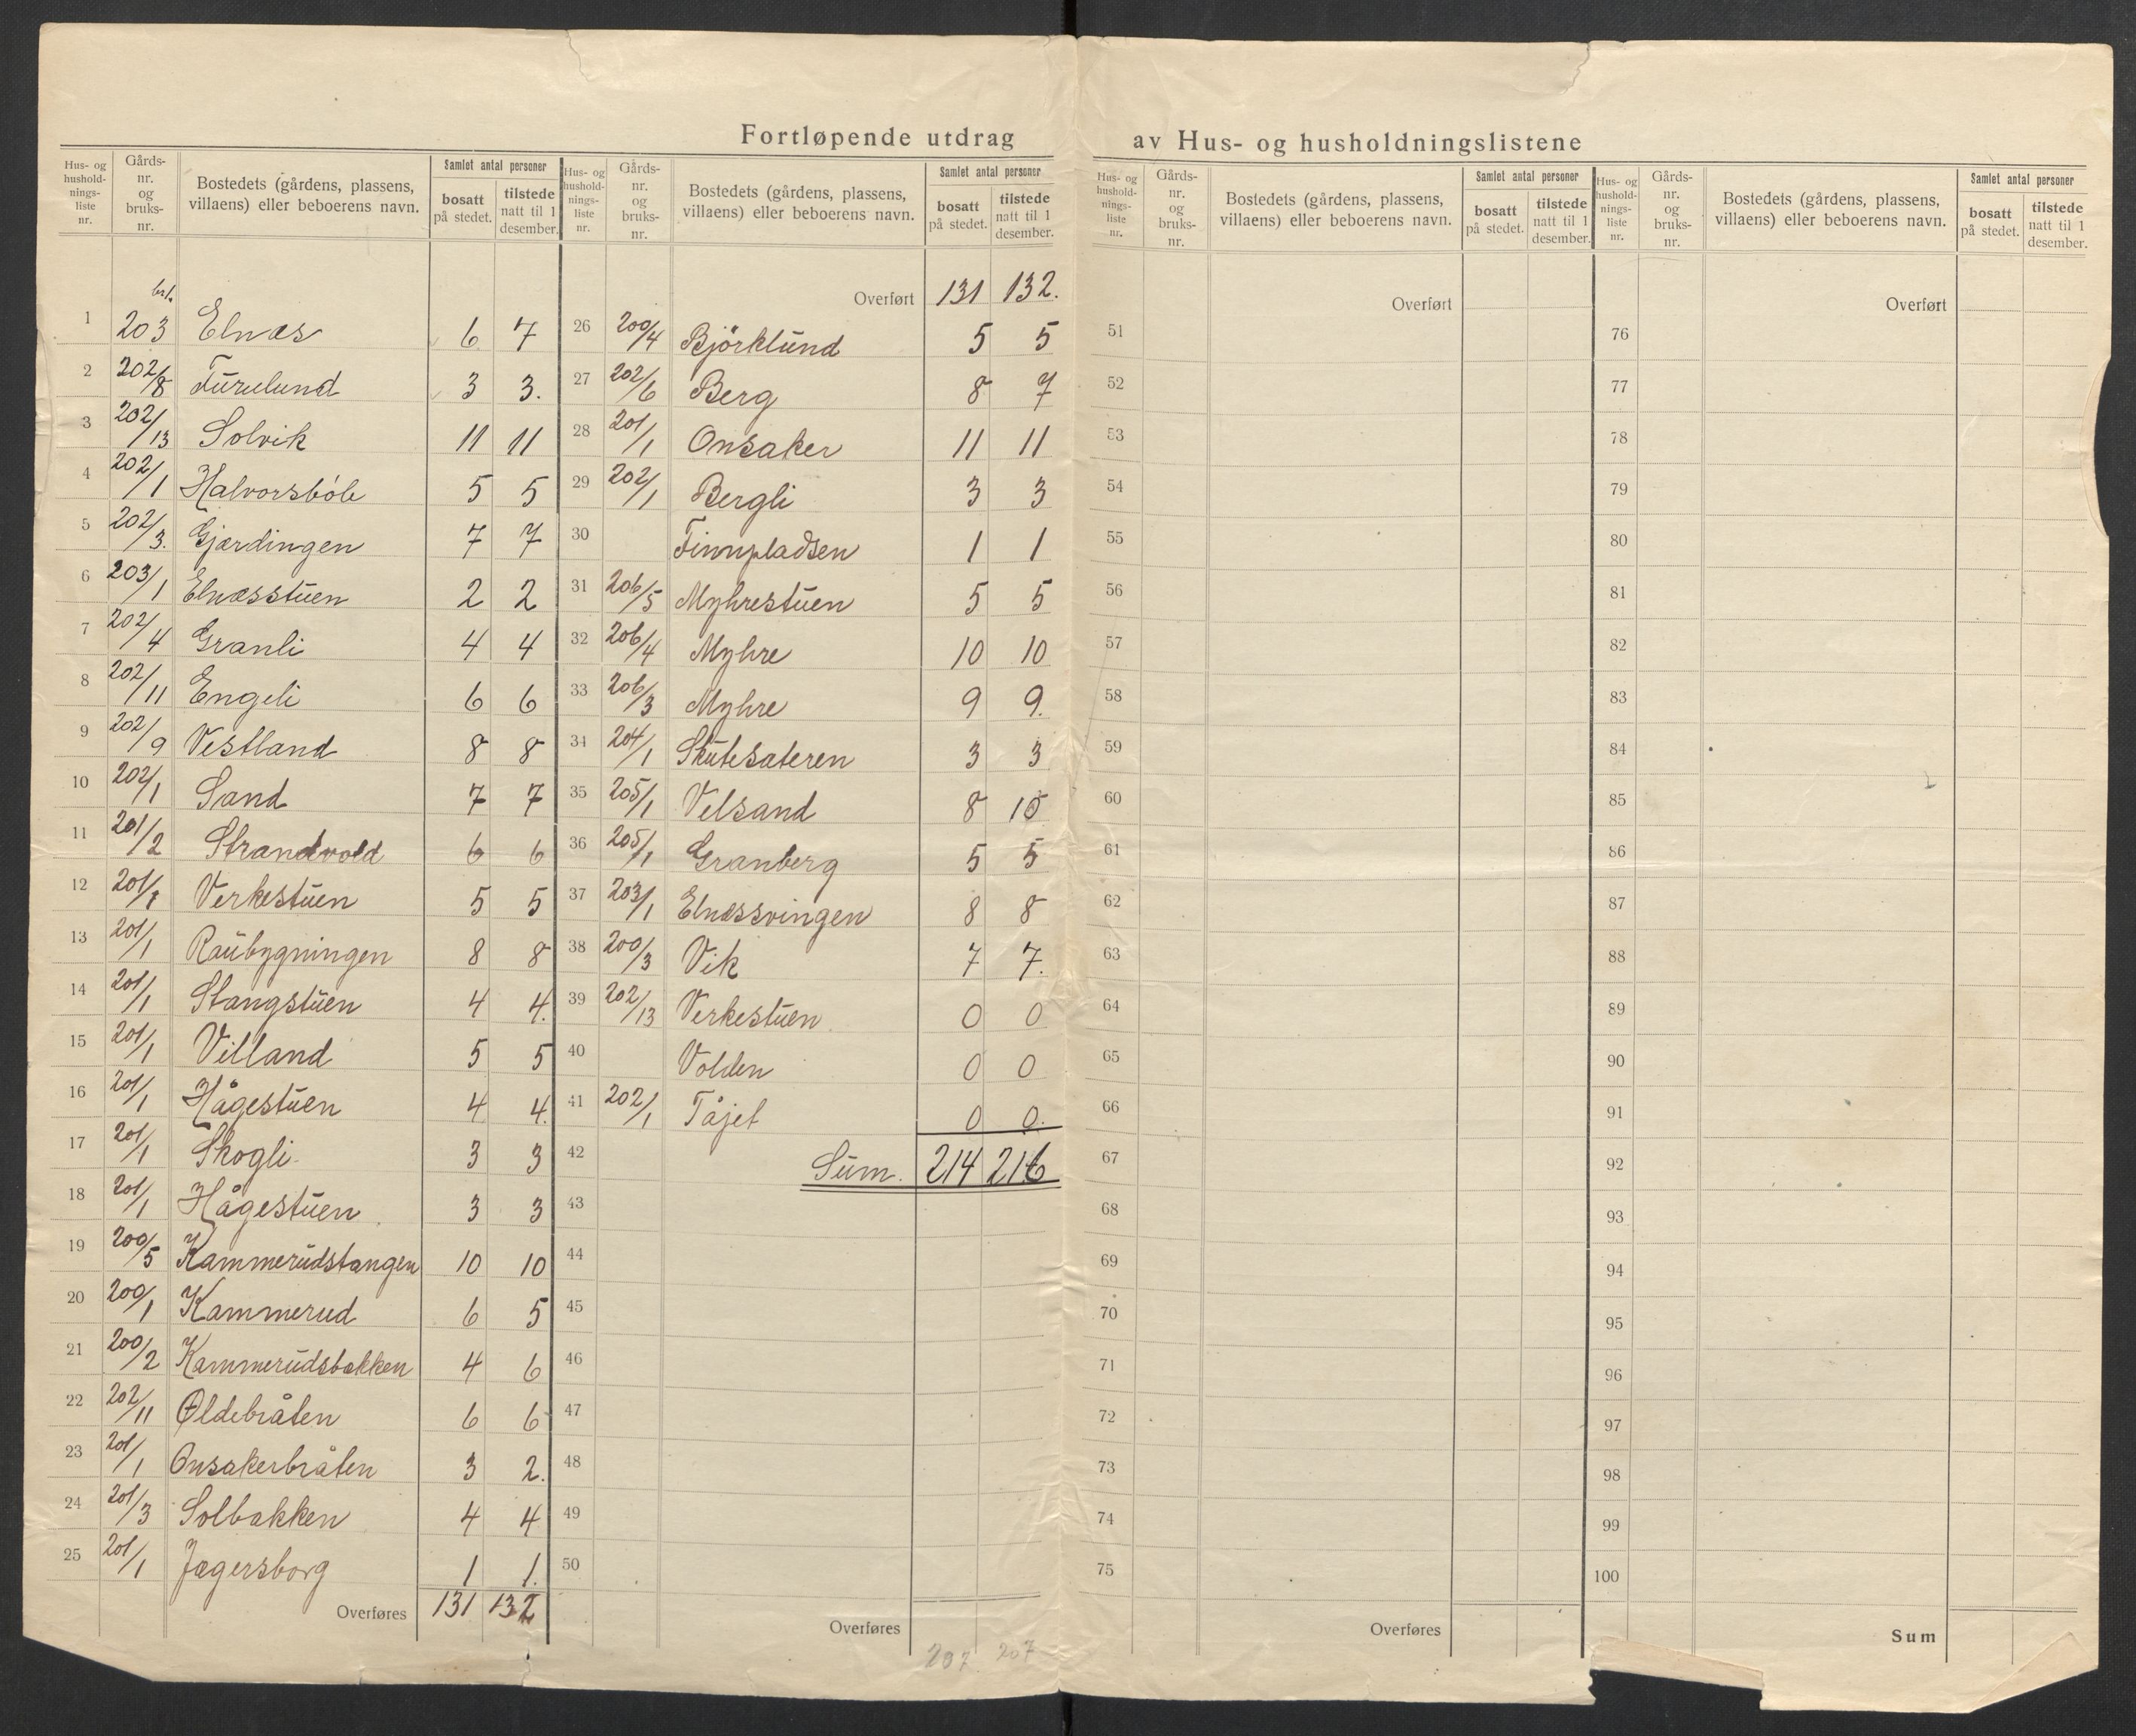 Fortløpende utdrag av Hus- og husholdningslistene
Hus- og hushold-nings-liste nr. Gårds-nr. og bruks-nr. Bostedets (gårdens, plassens, villaens) eller beboerens navn. Samlet antal personer bosatt på stedet. tilstede natt til 1 desember.
1 203 Elnæs 6 7
2 202/8 Furulund 3 3.
3 202/13 Solvik 11 11
4 202/1 Halvorsböle 5 5
5 202/3. Gjærdingen 7 7
6 203/1 Elnæsstuen 2 2
7 202/4 Granli 4 4
8 202/11 Engeli 6 6
9 202/9 Vestland 8 8
10 202/1 Sand 7 7
11 201/2 Strandvold 6 6
12 201/1 Verkestuen 5 5
13 201/1 Raubygningen 8 8
14 201/1 Stangstuen 4 4.
15 201/1 Villand 5 5
16 201/1 Hågestuen 4 4.
17 201/1 Skogli 3 3
18 201/1 Hågestuen 3 3
19 200/5 Kammerudstangen 10 10
20 200/1 Kammerud 6 5
21 200/2 Kammerudsbakken 4 6
22 202/11 Oldebråten 6 6
23 201/1 Onsakerbråten 3 2.
24 201/3 Solbakken 4 4
25 201/1 Jægersborg 1 1.
Overføres 131 132
Hus- og hushold-nings-liste nr. Gårds-nr. og bruks-nr. Bostedets (gårdens, plassens, villaens) eller beboerens navn. Samlet antal personer bosatt på stedet. tilstede natt til 1 desember.
Overført 131 132.
26 200/4 Björklund 5 5
27 202/6 Berg 8 7
28 201/1 Onsaker 11 11
29 202/1 Bergli 3 3
30 Finnpladsen 1 1
31 206/5 Myhrestuen 5 5
32 206/4 Myhre 10 10
33 206/3 Myhre 9 9.
34 204/1 Skutesæteren 3 3
35 205/1 Velsand 8 10
36 205/1 Granberg 5 5
37 203/1 Elnæssvingen 8 8
38 200/3 Vik 7 7.
39 202/13 Verkestuen 0 0
40 Volden 0 0
41 202/1 Tåjet 0 0.
42 Sum. 214 216
43
44
45
46
47
48
49
50
Overføres
207 207
Hus- og hushold-nings-liste nr. Gårds-nr. og bruks-nr. Bostedets (gårdens, plassens, villaens) eller beboerens navn. Samlet antal personer bosatt på stedet. tilstede natt til 1 desember.
Overført
51
52
53
54
55
56
57
58
59
60
61
62
63
64
65
66
67
68
69
70
71
72
73
74
75
Overføres
Hus- og hushold-nings-liste nr. Gårds-nr. og bruks-nr. Bostedets (gårdens, plassens, villaens) eller beboerens navn. Samlet antal personer bosatt på stedet. tilstede natt til 1 desember.
Overført
76
77
78
79
80
81
82
83
84
85
86
87
88
89
90
91
92
93
94
95
96
97
98
99
100
Sum